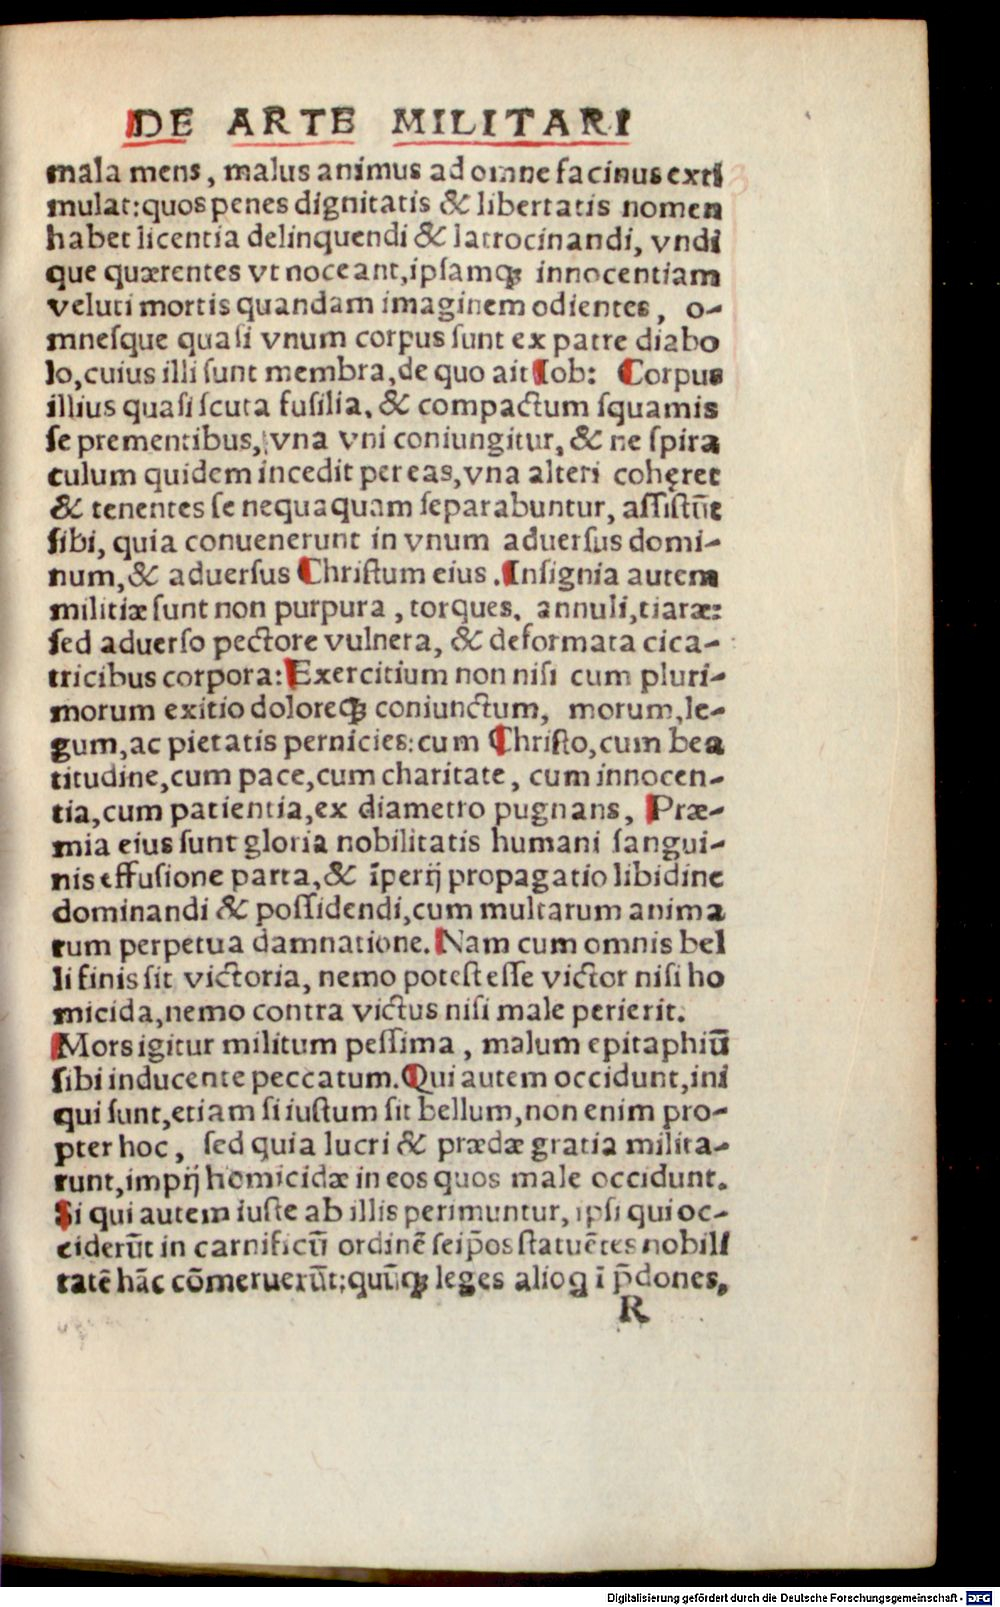 DE ARTE MILITARI
mala mens, malus animus ad omne facinus exti
mulat:quos penes dignitatis & libertatis nomen
habet licentia delinquendi & latrocinandi, vndi
que quærentes vt noceant,ipsamqꝫ innocentiam
veluti mortis quandam imaginem odientes, o-
mnesque quasi vnum corpus sunt ex patre diabo
lo,cuius illi sunt membra,de quo ait Iob: Corpus
illius quasi scuta fusilia, & compactum squamis
se prementibus, vna vni coniungitur, & ne spira
culum quidem incedit per eas,vna alteri cohęret
& tenentes se nequaquam separabuntur, assistũt
sibi, quia conuenerunt in vnum aduersus domi-
num,& aduersus Christum eius. Insignia autem
militiæ sunt non purpura, torques, annuli,tiaræ:
sed aduerso pectore vulnera, & deformata cica-
tricibus corpora: Exercitium non nisi cum pluri-
morum exitio doloreqꝫ coniunctum, morum,le-
gum,ac pietatis pernicies: cum Christo,cum bea
titudine,cum pace,cum charitate, cum innocen-
tia,cum patientia,ex diametro pugnans, Præ-
mia eius sunt gloria nobilitatis humani sangui-
nis effusione parta,& ĩperij propagatio libidine
dominandi & possidendi,cum multarum anima
rum perpetua damnatione. Nam cum omnis bel
li finis sit victoria, nemo potest esse victor nisi ho
micida,nemo contra victus nisi male perierit.
Mors igitur militum pessima, malum epitaphiũ
sibi inducente peccatum. Qui autem occidunt,ini
qui sunt,etiam si iustum sit bellum,non enim pro-
pter hoc, sed quia lucri & prædæ gratia milita-
runt,impij homicidæ in eos quos male occidunt.
Si qui autem iuste ab illis perimuntur, ipsi qui oc-
ciderũt in carnificũ ordinẽ seip̃os statuẽtes nobili
tatẽ hãc cõmeruerũt:quũqꝫ leges alioq ĩ p̃dones,
R
Digitalisierung gefördert durch die Deutsche Forschungsgemeinschaft - DFG